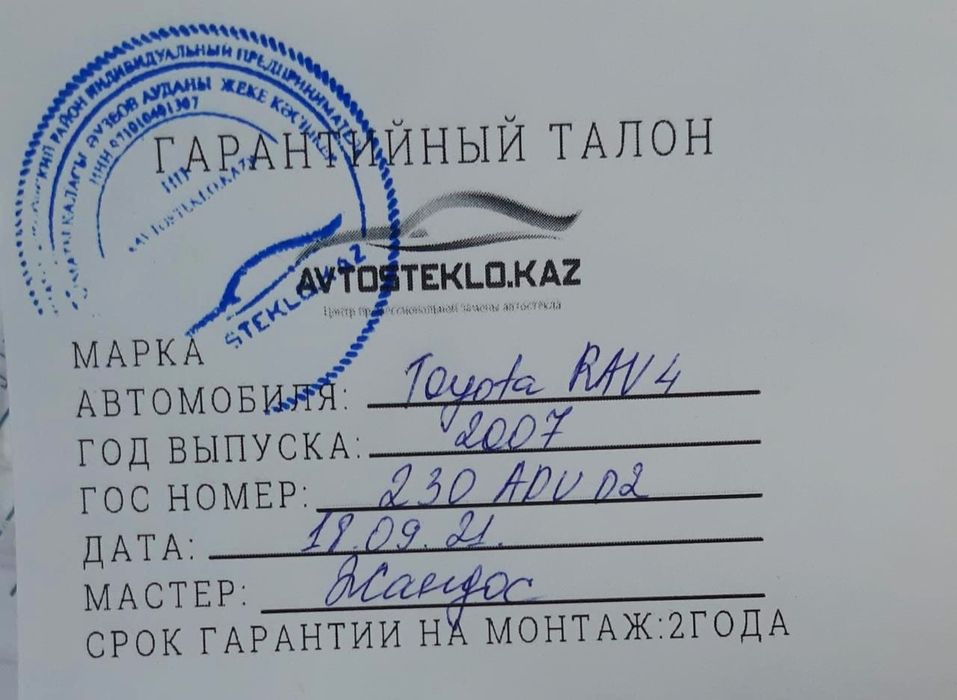 РАЙОН ИНДИВИДУАЛЬНЫЙ ПРЕДПРИНИМАТЕЛЬ
ҚАЛАСЫ ӘУЕЗОВ АУДАНЫ ЖЕКЕ КӘСІПКЕР
ИП
«AVTOSTEKLO.KAZ»
STEKLO.KAZ
ГАРАНТИЙНЫЙ ТАЛОН
AVTOSTEKLO.KAZ
Центр профессиональной замены автостекла
МАРКА
АВТОМОБИЛЯ: Toyota RAV4
ГОД ВЫПУСКА: 2007
ГОС НОМЕР: 230 ADV 02
ДАТА: 18.09.21.
МАСТЕР: Жандос
СРОК ГАРАНТИИ НА МОНТАЖ:2ГОДА